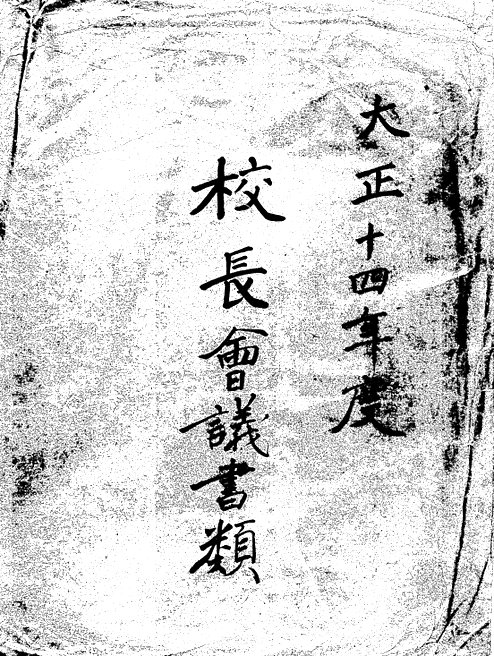 大正十四年度
校長會議書類